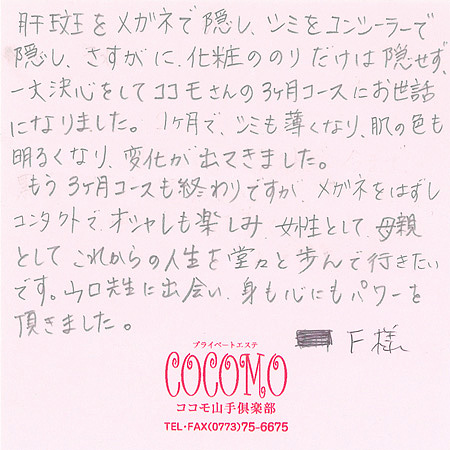 肝斑をメガネで隠し、シミをコンシーラーで
隠し、さすがに、化粧ののりだけは隠せず、
一大決心をしてココモさんの3ヶ月コースにお世話
になりました。1ヶ月で、シミも薄くなり、肌の色も
明るくなり、変化が出てきました。
もう3ヶ月コースも終わりですが、メガネをはずし
コンタクトで、オシャレも楽しみ、女性として、母親
として これからの人生を堂々と歩んで行きたい
です。山口先生に出会い、身も心にもパワーを
頂きました。
F様
プライベートエステ
COCOMO
ココモ山手倶楽部
TEL・FAX(0773)75-6675